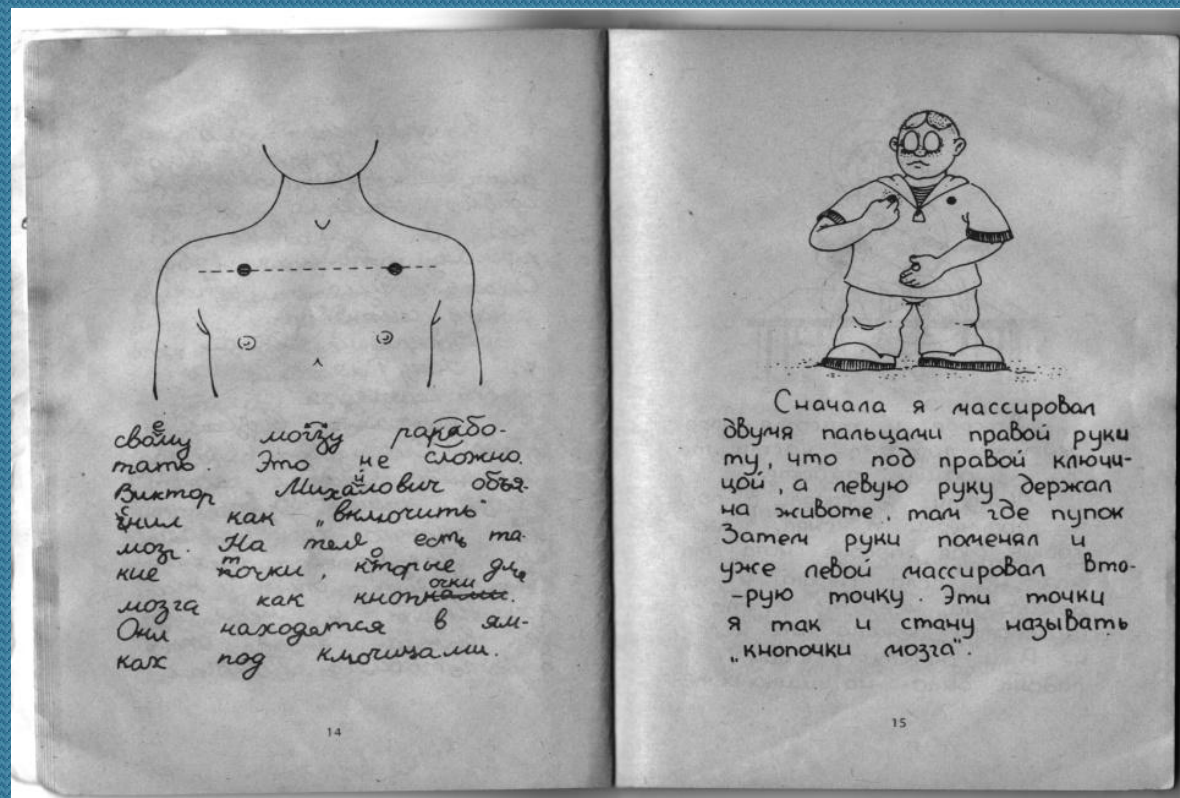 своему мозгу рабо-
тать. Это не сложно.
Виктор Михайлович объя-
снил как „включить"
мозг. На теле есть та-
кие точки, которые для
мозга как кнопочки.
Они находятся в ям-
ках под ключицами.
14
Сначала я массировал
двумя пальцами правой руки
ту, что под правой ключи-
цой, а левую руку держал
на животе, там где пупок
Затем руки поменял и
уже левой массировал вто-
-рую точку. Эти точки
я так и стану называть
„кнопочки мозга".
15